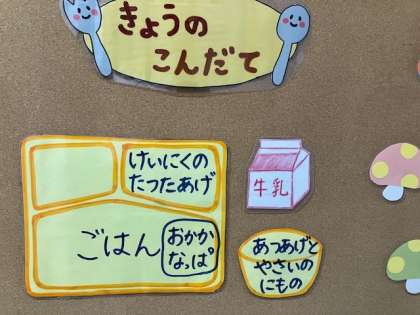 きょうの
こんだて
けいにくの
たつたあげ
牛乳
ごはん
おかか
なっぱ
あつあげと
やさいの
にもの